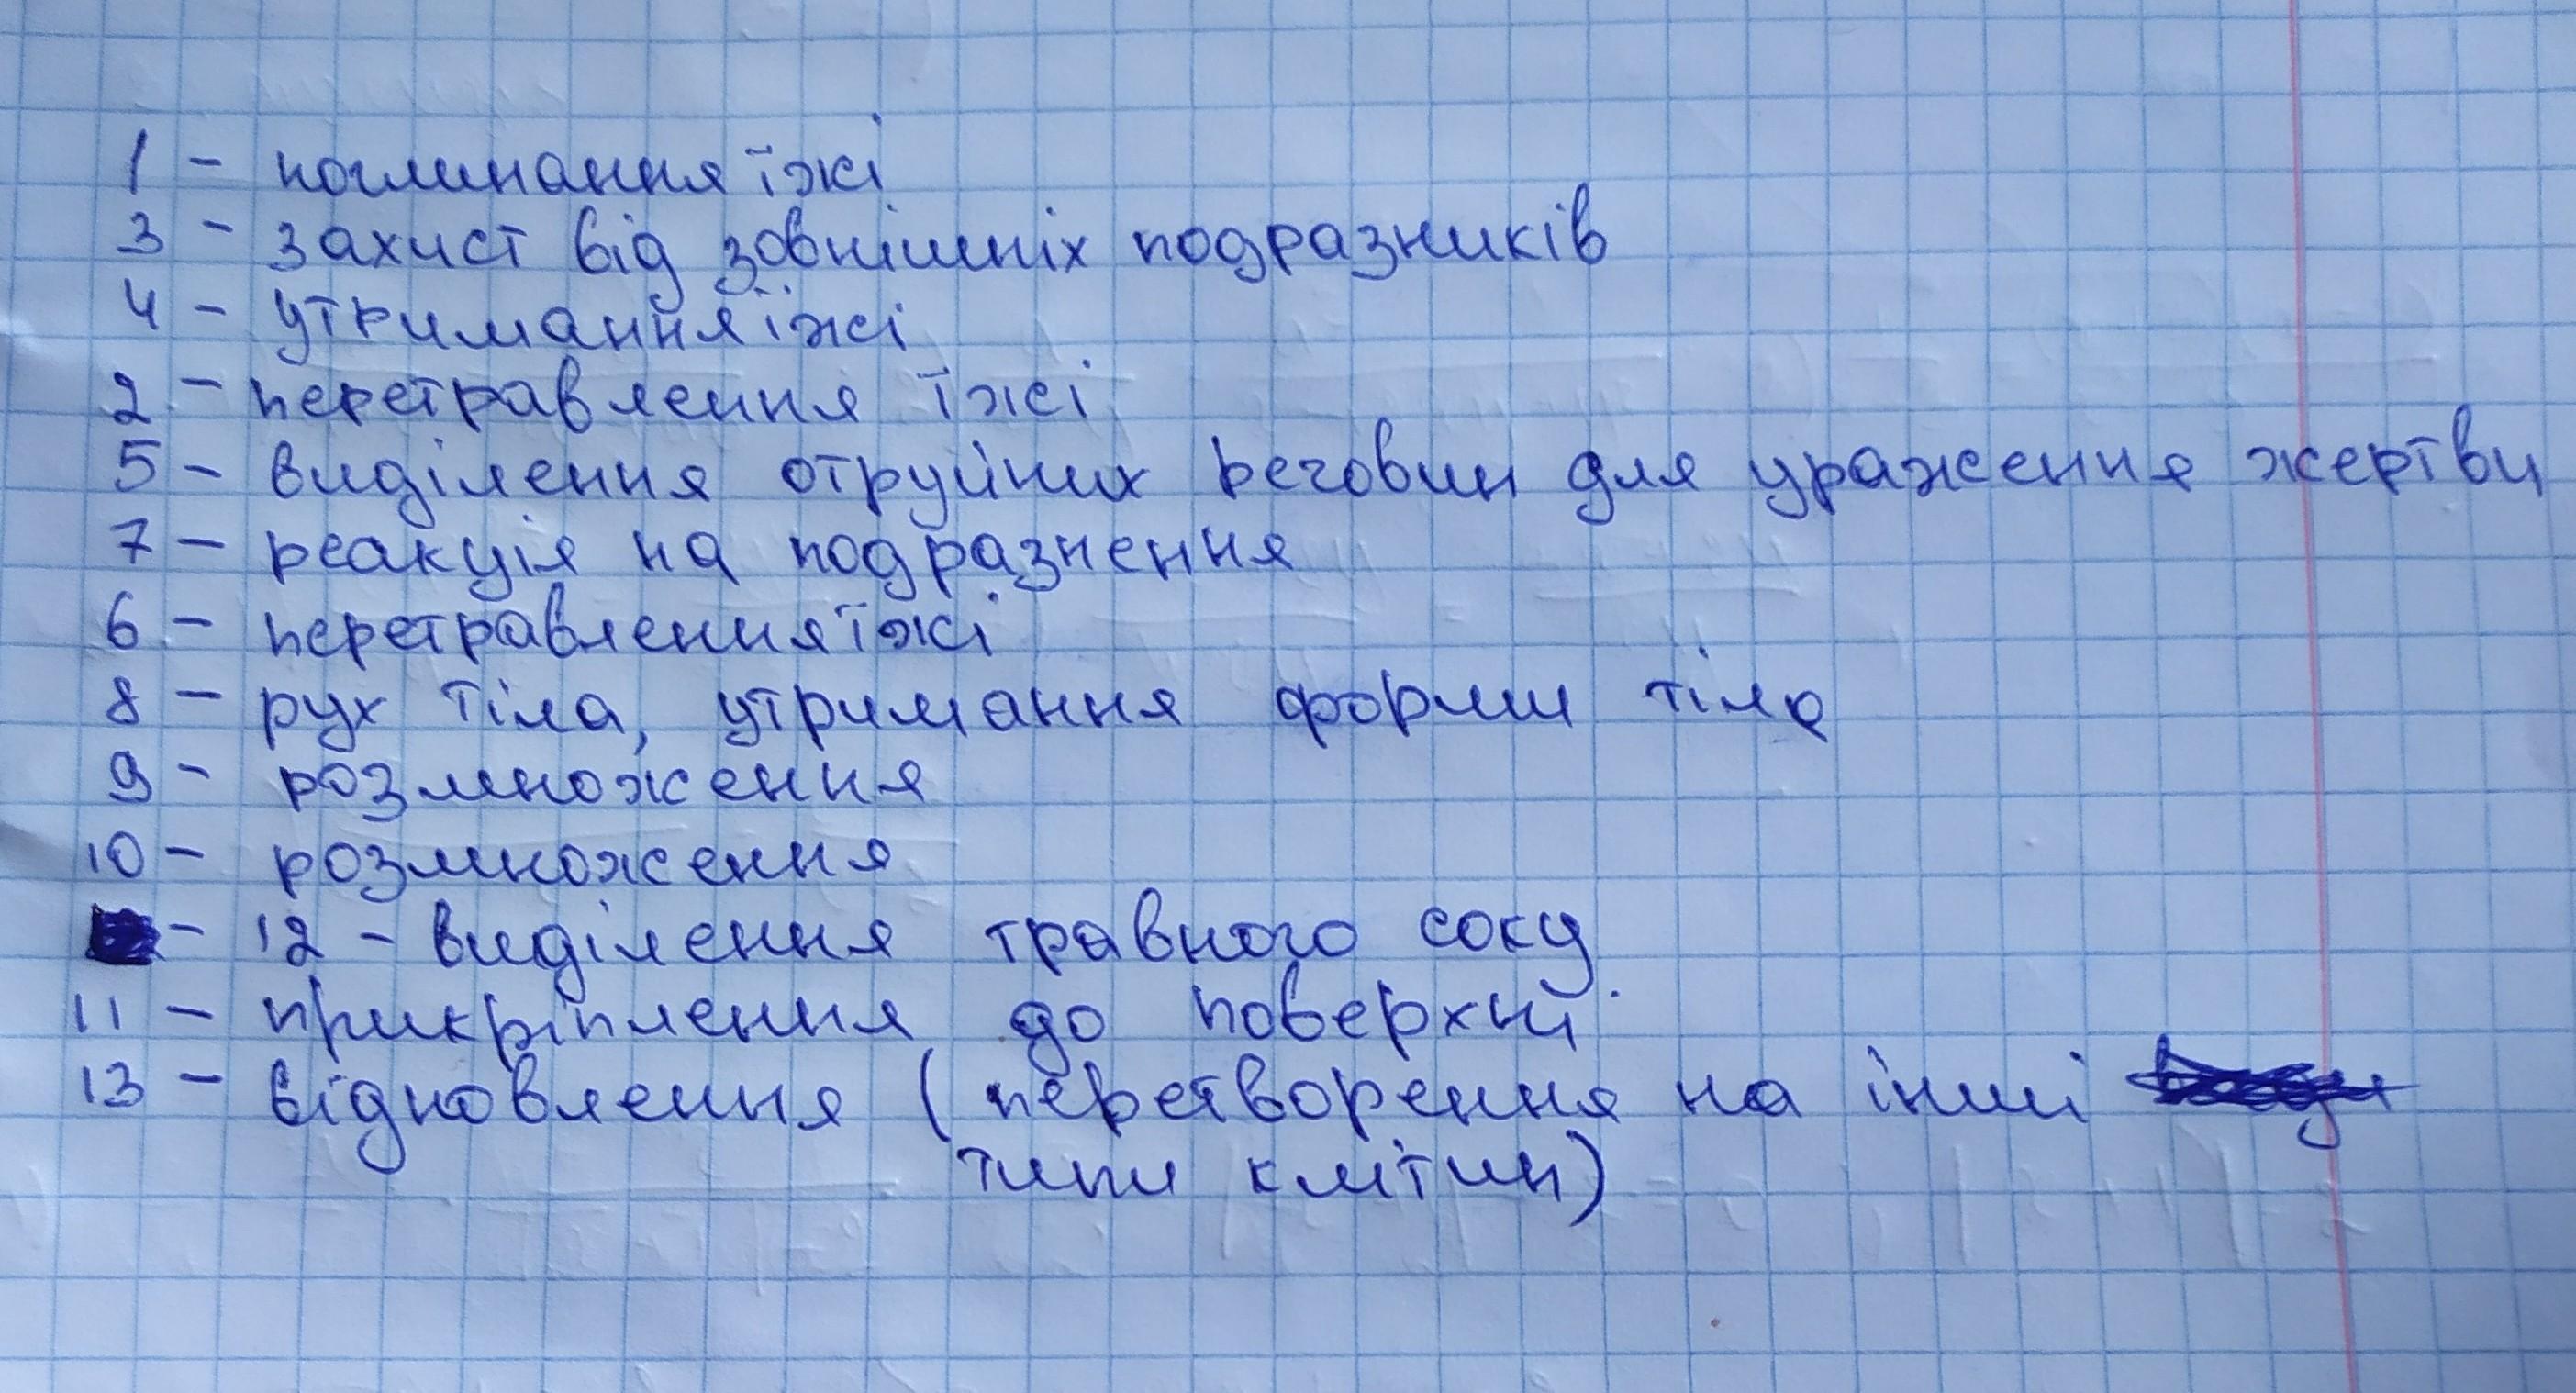 1 - поглинання їжі
3 - захист від зовнішніх подразників
4 - утримання їжі
2 - перетравлення їжі
5 - виділення отруйних речовин для ураження жертви
7 - реакція на подразнення
6 - перетравлення їжі
8 - рух тіла, утримання форми тіла
9 - розмноження
10 - розмноження
- 12 - виділення травного соку
11 - прикріплення до поверхні
13 - відновлення (перетворення на інші
типи клітин)